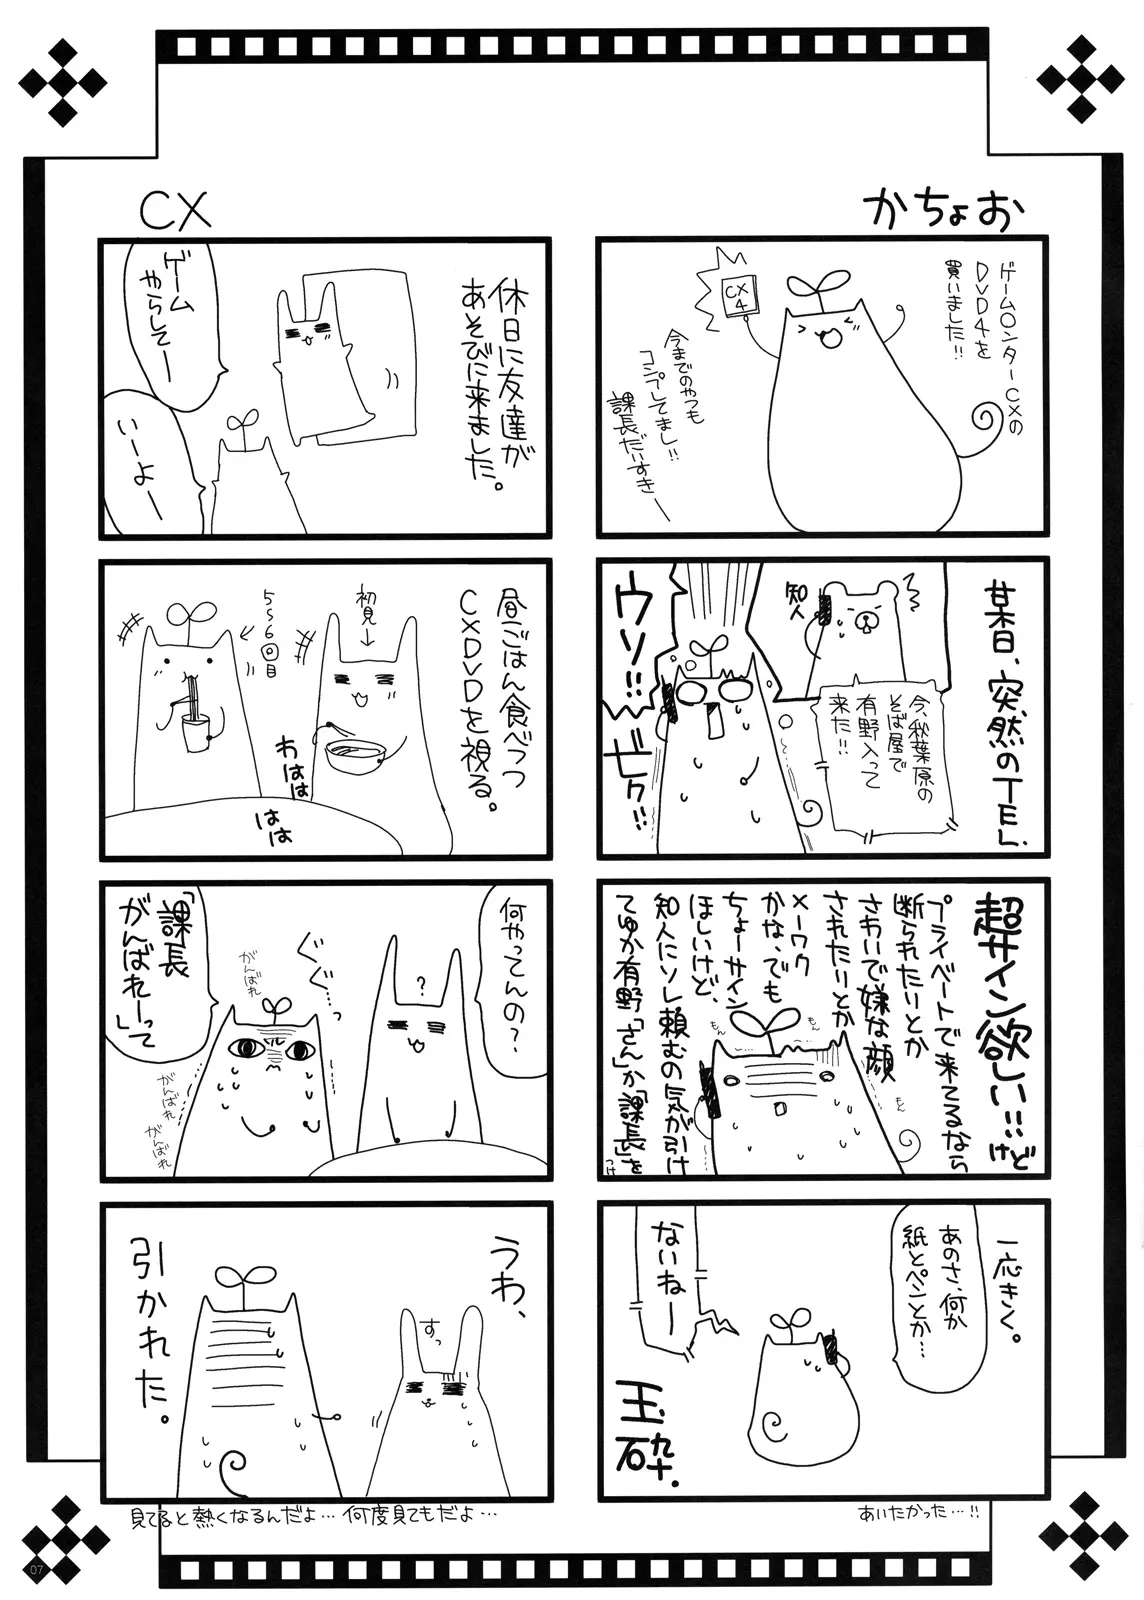 かちょお
ゲーム○ンターCXの
DVD4を
買いました!!
CX
4
今までのやつも
コンプしてまし!!
課長だいすきー
某日、突然のTEL.
知人
今、秋葉原の
そば屋で
有野入って
来た!!
ウソ!!
ビク!!
超サイン欲しい!!けど
プライベートで来てるなら
断られたいとか
さわいで嫌な顔
されたいとか
メーワク
かな、でも
ちょーサイン
ほしいけど、
知人にソレ頼むの気が引け
てゆか有野「さん」か「課長」を
つけ
もん
もん
もん
もん
一応きく。
あのさ、何か
紙とペンとか…
ないねー
玉砕.
あいたかった…!!
CX
休日に友達が
あそびに来ました。
ゲーム
やらしてー
いーよー
昼ごはん食べつつ
CXDVDを視る。
初見→
5~6回目
わはは
はは
何やってんの?
?
ぐぐ…っ
がんばれ
「課長
がんばれー」って
がんばれ
がんばれ
うわ、
すっ
引かれた。
見てると熱くなるんだよ… 何度見てもだよ…
07